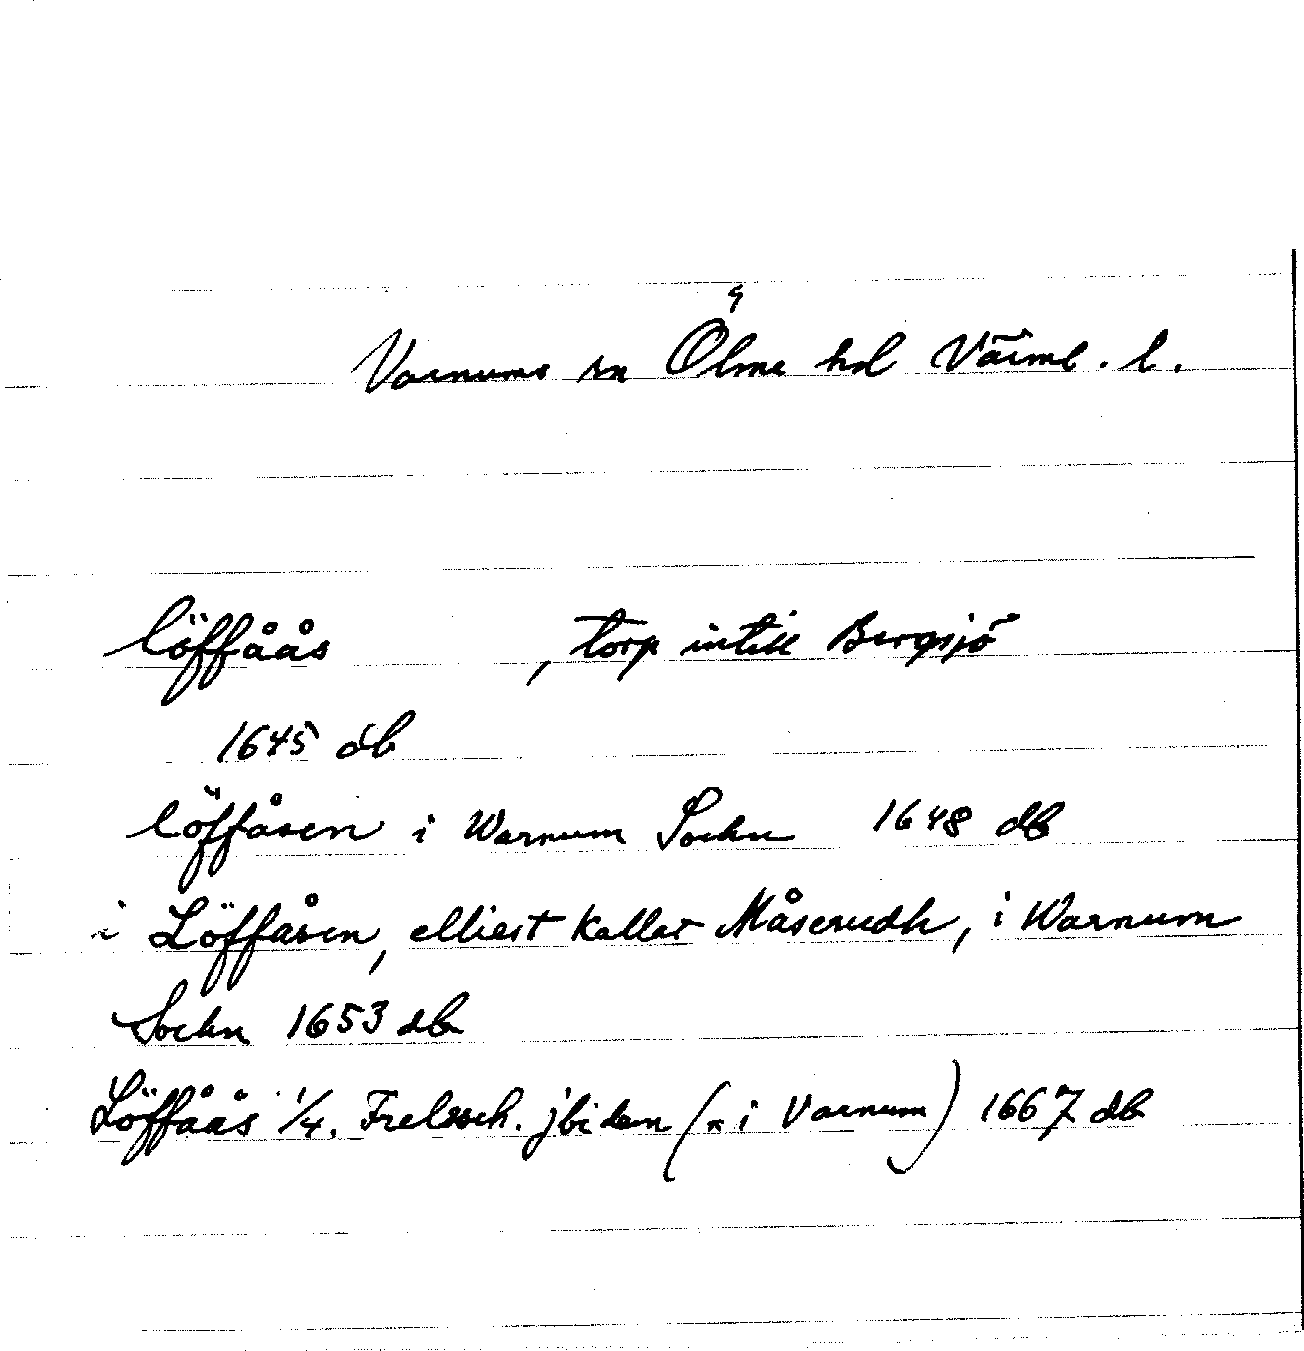 Varnums sn Ölme hd Värml. l.
löffåås , torp intill Bergsjö
1645 db
löffåsen i Warnum Sochn 1648 db
i Löffåsen, elliest kallat Måserudh, i Warnum
Sochn 1653 db
Löffåås 1/4. Frelsseh. jbidem (i Varnum) 1667 db